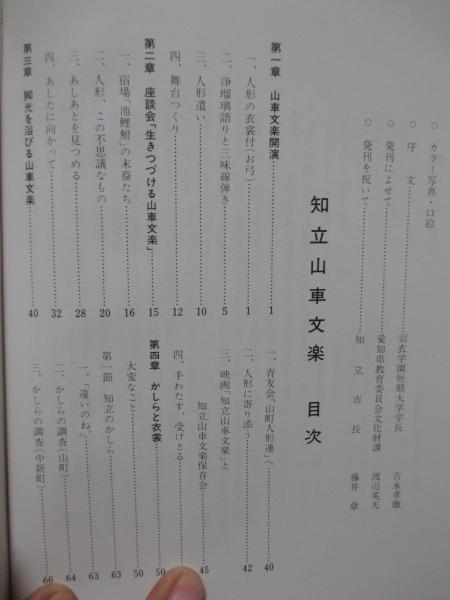 知立山車文楽 目次
○ カラー写真・口絵
○ 序文……羽衣学園短期大学学長 吉永孝雄
○ 発刊によせて……愛知県教育委員会文化財課 渡辺英夫
○ 発刊を祝いて……知立市長 藤井章
第一章 山車文楽開演……1
一、人形の衣裳付(お弓)……1
二、浄瑠璃語りと三味線弾き……5
三、人形遣い……10
四、舞台つくり……12
第二章 座談会「生きつづける山車文楽」……15
一、宿場「池鯉鮒」の末裔たち……16
二、人形、この不思議なもの……20
三、あしあとを見つめる……28
四、あしたに向かって……32
第三章 脚光を浴びる山車文楽……40
一、青友会「山町人形連」へ……40
二、人形に寄り添う……42
三、映画「知立山車文楽」と
知立山車文楽保存会……45
四、手わたす、受けとる……50
第四章 かしらと衣裳……50
大変なこと……
第一節 知立のかしら……63
一、「遠いのね。」……63
二、かしらの調査(山町)……64
三、かしらの調査(中新町)……66